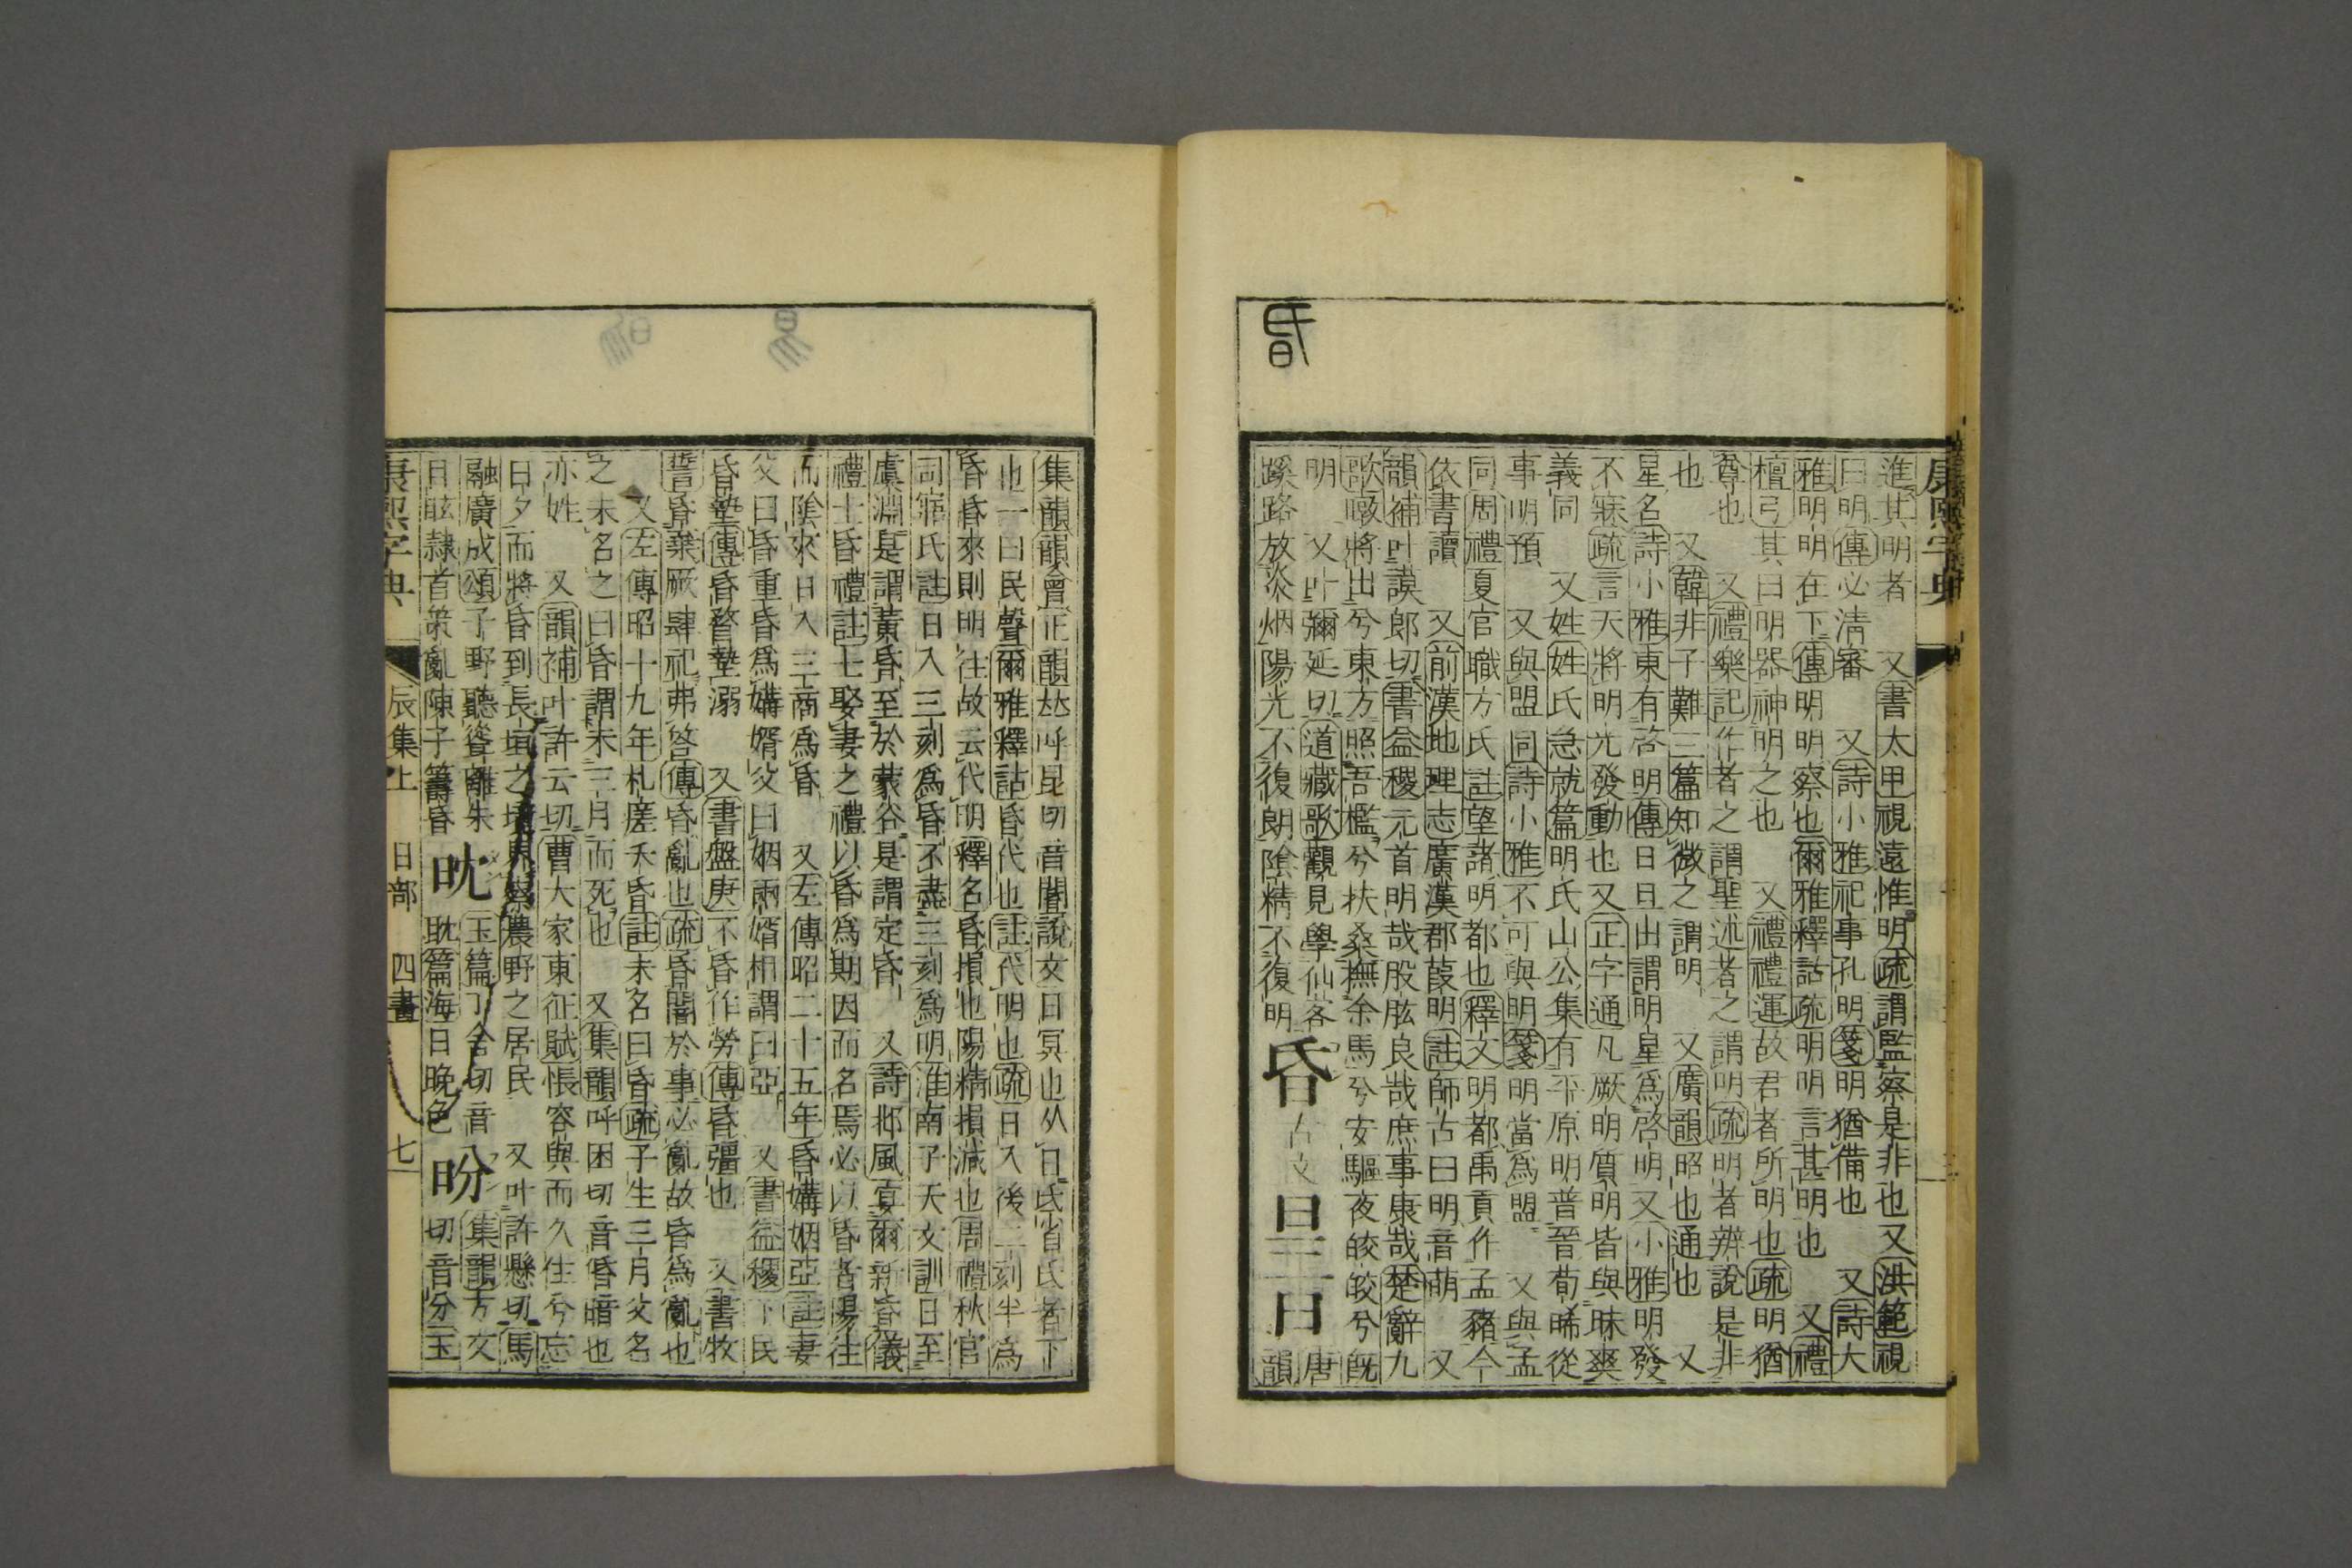 康熙字典
昏
進其明者　又書太甲視遠惟明疏謂監察是非也又洪範視
曰明傳必清審　又詩小雅祀事孔明箋明猶備也　又詩大
雅明明在下傳明明察也爾雅釋詁疏明明言甚明也　又禮
檀弓其曰明器神明之也　又禮禮運故君者所明也疏明猶
尊也　又禮樂記作者之謂聖述者之謂明疏明者辨說是非
也　又韓非子難三篇知微之謂明　又廣韻昭也通也　又
星名詩小雅東有啓明傳日旦出謂明星爲啓明又小雅明發
不寐疏言天將明光發動也又正字通凡厥明質明皆與昧爽
義同　又姓姓氏急就篇明氏山公集有平原明普晉荀晞從
事明預　又與盟同詩小雅不可與明箋明當爲盟　又與孟
同周禮夏官職方氏註望諸明都也釋文明都禹貢作孟豬今
依書讀　又前漢地理志廣漢郡葭明註師古曰明音萌　又
韻補叶謨郎切書益稷元首明哉股肱良哉庶事康哉楚辭九
歌暾將出兮東方照吾檻兮扶桑撫余馬兮安驅夜皎皎兮旣
明　又叶彌延切道藏歌觀見學仙客　唐
蹊路放炎烟陽光不復朗陰精不復明　昏　古文　旦一日　韻
集韻韻會正韻𠀤呼昆切音閽說文日冥也从日氐省氐者下
也一曰民聲爾雅釋詁昏代也註代明也疏日入後二刻半爲
昏昏來則明往故云代明釋名昏損也陽精損減也周禮秋官
司寤氏註日入三刻爲昏不盡三刻爲明淮南子天文訓日至
虞淵是謂黃昏至於蒙谷是謂定昏　又詩邶風宴爾新昏儀
禮士昏禮註士娶妻之禮以昏爲期因而名焉必以昏者陽往
而陰來日入三商爲昏　又左傳昭二十五年昏媾姻亞註妻
父曰昏重昏爲媾婿父曰姻兩婿相謂曰亞　又書益稷下民
昏墊傳昏瞀墊溺　又書盤庚不昏作勞傳昏彊也　又書牧
誓昏棄厥肆祀弗答傳昏亂也疏昏闇於事必亂故昏爲亂也
又左傳昭十九年札瘥夭昏註未名曰昏疏子生三月父名
之未名之曰昏謂未三月而死也　又集韻呼困切音惛暗也
亦姓　又韻補叶許云切曹大家東征賦悵容與而久住兮忘
日夕而將昏到長垣之境界察農野之居民　又叶許懸切馬
融廣成頌子野聽聳離朱　玉篇丁含切音　集韻方文
目眩隸首策亂陳子籌昏　眈　耽篇海日晚色　昐　切音分玉
康熙字典　辰集上　日部　四畫　七